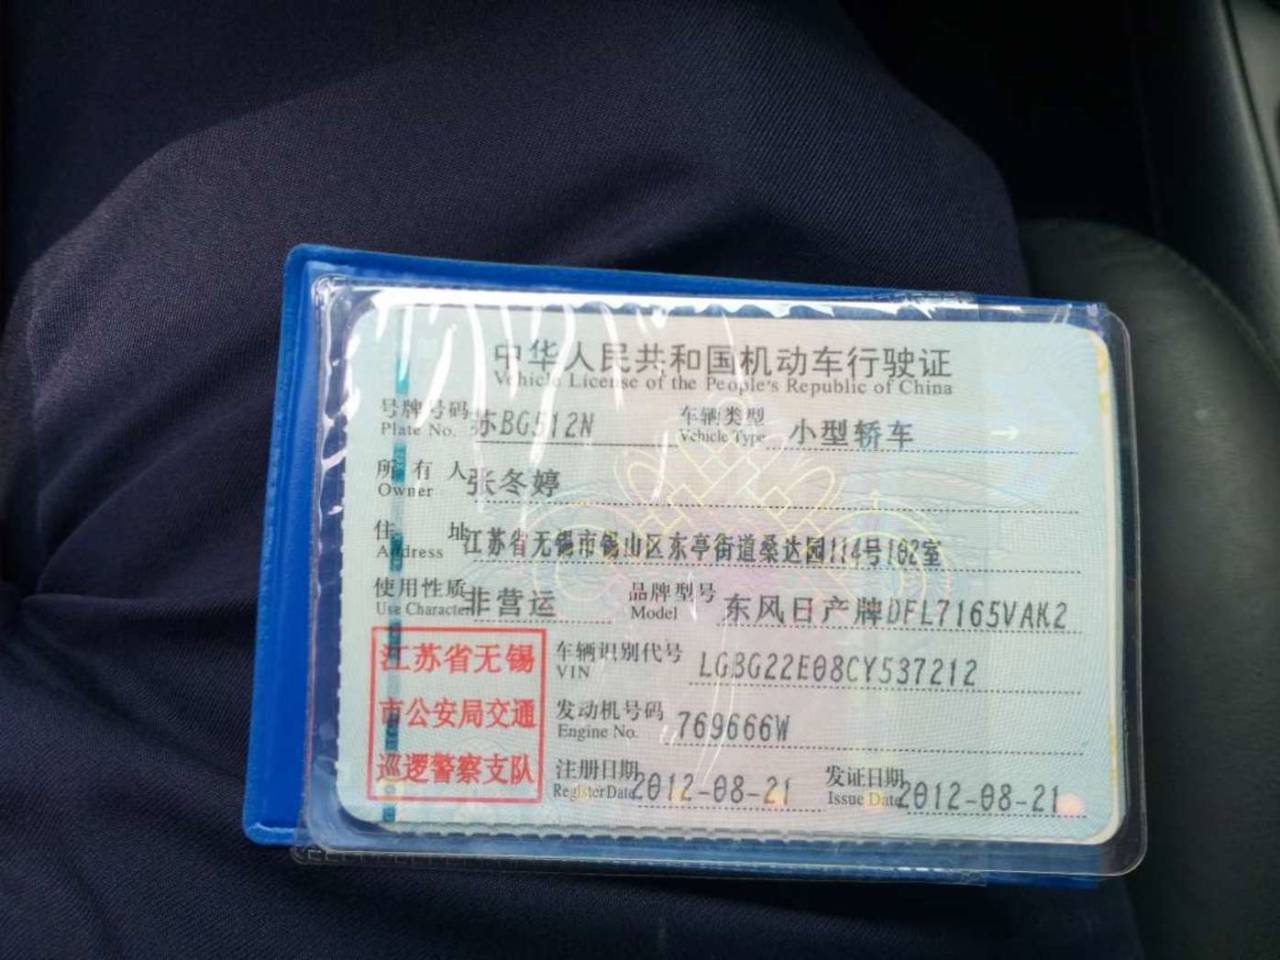 中华人民共和国机动车行驶证
Vehicle License of the People's Republic of China
号牌号码 苏BG512N 车辆类型 小型轿车
Plate No. Vehicle Type
所有人 张冬婷
Owner
住址 江苏省无锡市锡山区东亭街道桑达园114号102室
Address
使用性质 非营运 品牌型号 东风日产牌DFL7165VAK2
Use Character Model
江苏省无锡
市公安局交通
巡逻警察支队
车辆识别代号 LGBG22E08CY537212
VIN
发动机号码 769666W
Engine No.
注册日期 2012-08-21 发证日期 2012-08-21
Register Date Issue Date